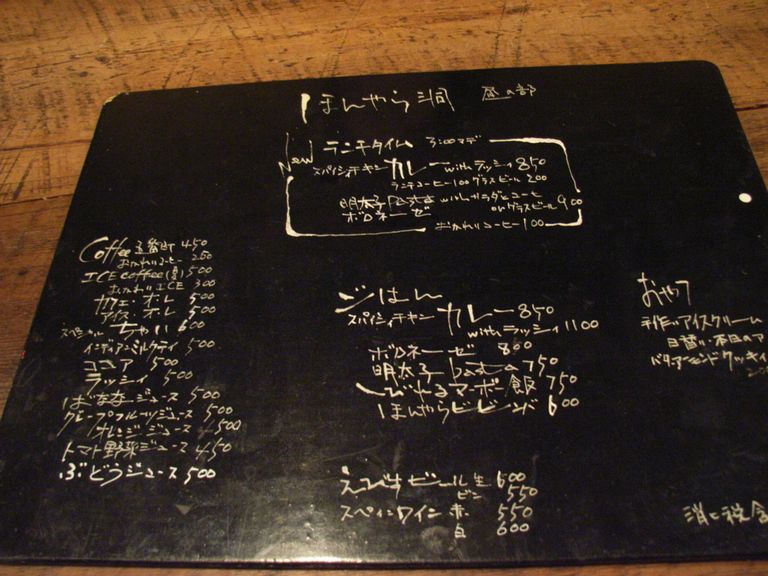 ほんやら洞 昼の部
New ランチタイム 3:00マデ
スパイシィチキン カレー withラッシィ 850
ランチコーヒー100 グラスビール200
明太子
ボロネーゼ
orグラスビール 900
おかわりコーヒー100
Coffee 五番町 450
おかわりコーヒー 250
ICE coffee(夏) 500
おかわりICE 300
カフェ・オ・レ 500
アイス・オ・レ 500
スペシャル ちゃい 600
インディアンミルクティ 500
ココア 500
ラッシィ 500
ばななジュース 500
グレープフルーツジュース 500
オレンジジュース 450
トマト野菜ジュース 450
ぶどうジュース 500
ごはん
スパイシィチキン カレー 850
withラッシィ 1100
ボロネーゼ 800
明太子 750
しびれるマーボー飯 750
ほんやらビビンバ 600
えびすビール 生 600
ビン 550
スペインワイン 赤 550
白 600
おやつ
手作りアイスクリーム
日替り 本日の
バターアーモンドクッキィ
消ヒ税含